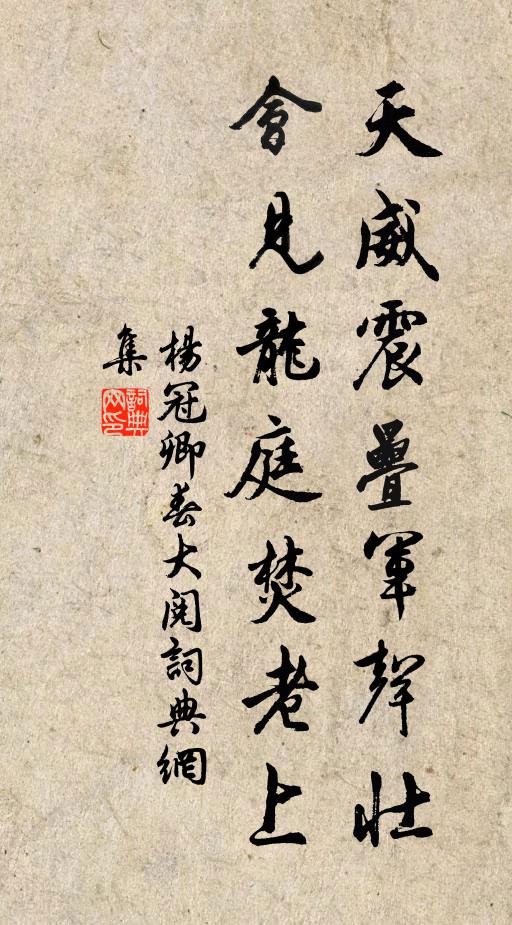 天威震疊軍聲壯
會見龍庭焚老上
楊冠卿春大閱詞典網
集
詞典
网印